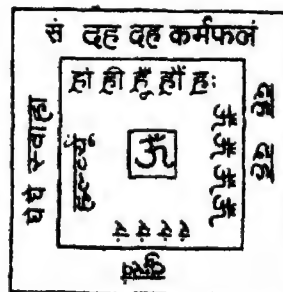 सं दह दह कर्मफलं
दह दह
घे घे स्वाहा
ह्रां ह्रीं ह्रूं ह्रौं ह्रः
ॐ ॐ ॐ ॐ
यं यं यं यं
ॐ